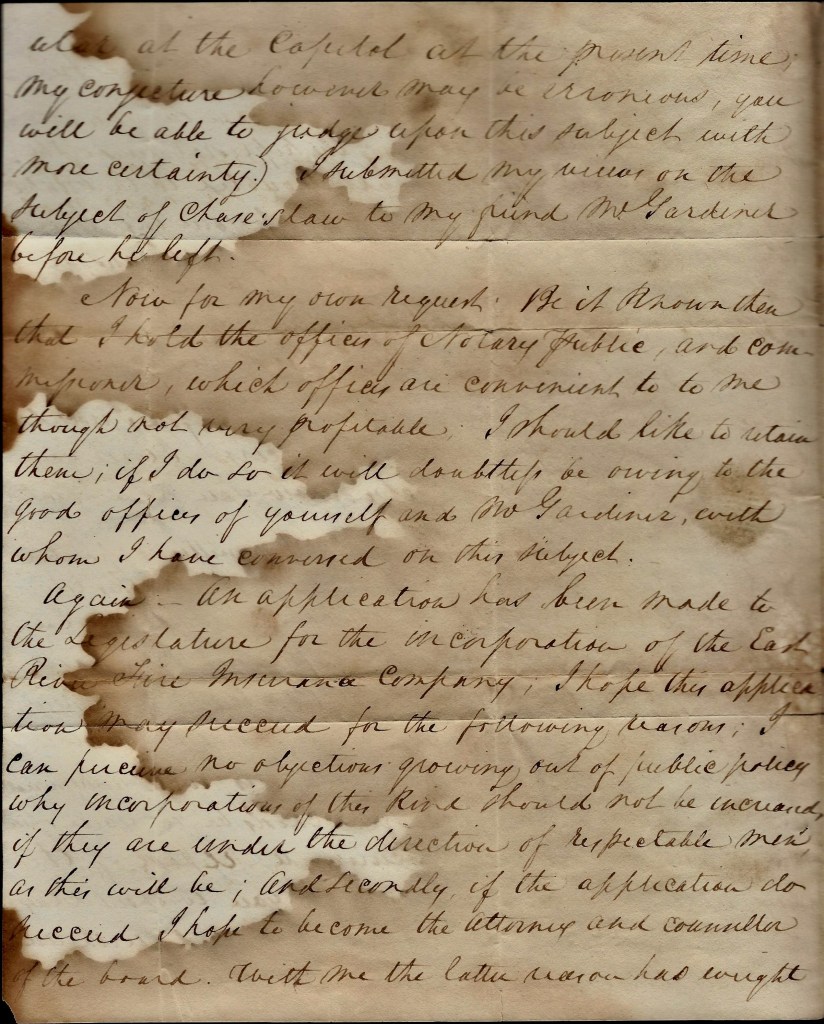 at the Capitol at the present time;
my conjecture however may be erroneous, you
will be able to judge upon this subject with
more certainty.) I submitted my views on the
subject of Chase's law to my friend Mr Gardiner
before he left.
Now for my own request. Be it Known then
that I hold the offices of Notary Public, and com-
missioner, which offices are convenient to to me
though not very profitable; I should like to retain
them; if I do so it will doubtless be owing to the
good offices of yourself and Mr Gardiner, with
whom I have conversed on this subject.
Again - An application has been made to
the Legislature for the incorporation of the East
River Fire Insurance Company; I hope this applica
tion may succeed for the following reasons; I
can perceive no objections growing out of public policy
why incorporations of this Kind should not be increased,
if they are under the direction of respectable men,
as this will be; And secondly, if the application do
succeed I hope to become the attorney and counsellor
of the board. With me the latter reason has weight